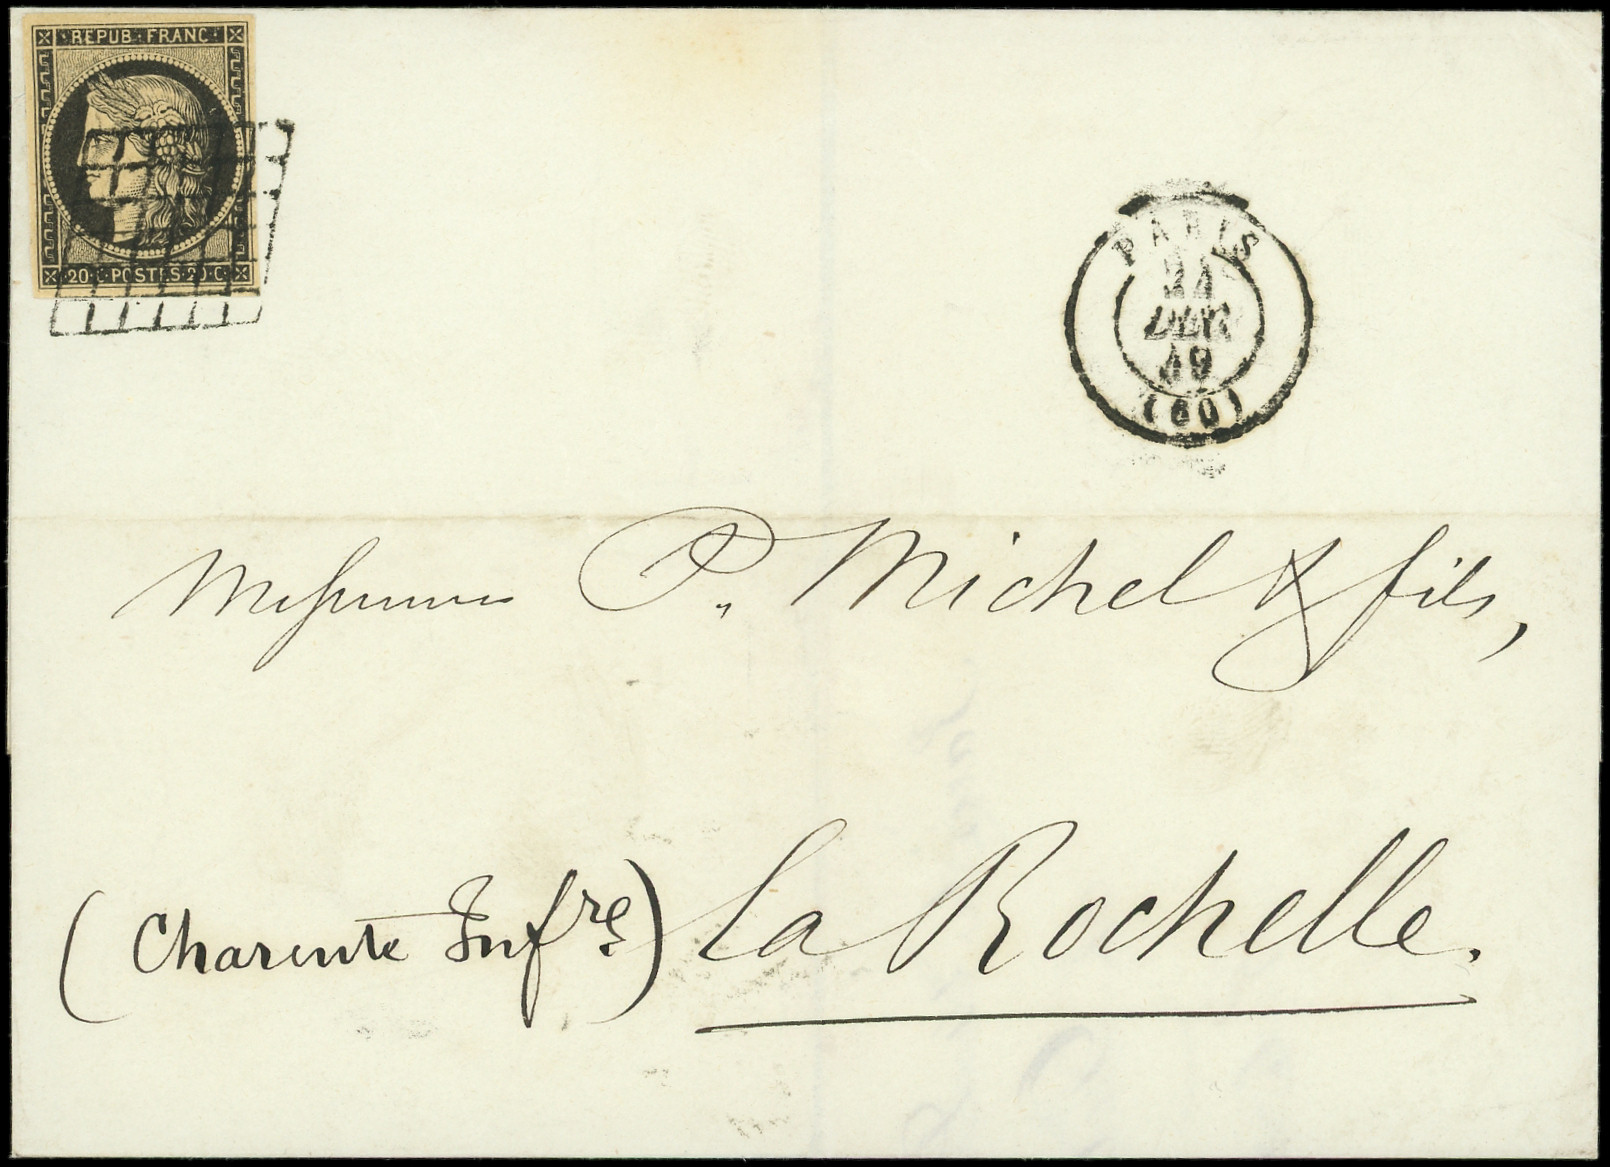 REPUB FRANC
20·C·POSTES·20·C
PARIS
DEC
49
(60)
Messieurs P. Michel & fils,
(Charente Infre) La Rochelle.